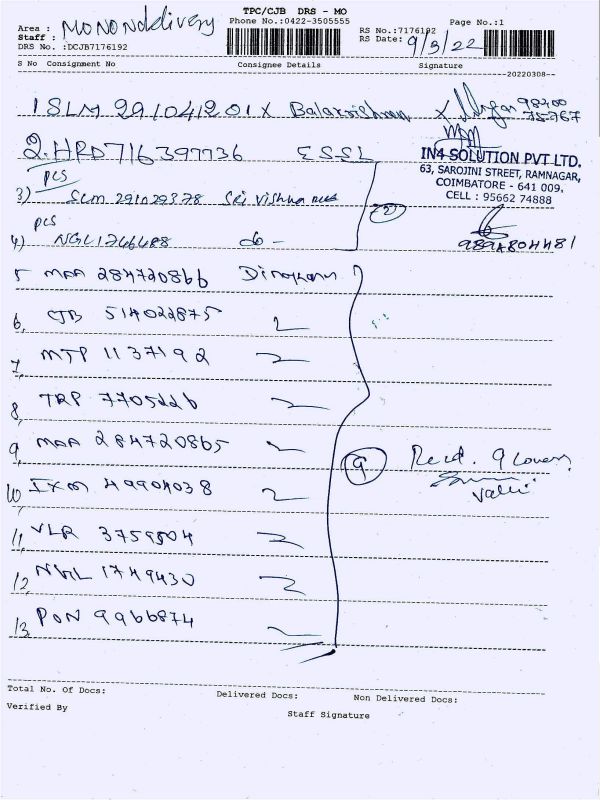 TPC/CJB DRS - MO
Area : MONONdelivery
Phone No.:0422-3505555
Page No.:1
Staff :
RS No.:7176192
DRS No. :DCJB7176192
RS Date: 9/3/22
S No Consignment No Consignee Details Signature
--20220308--
1 SLM 291041201 X Balakrishnan X 98400
75767
2. HRD716397736 ESSL
IN4 SOLUTION PVT LTD.
63, SAROJINI STREET, RAMNAGAR,
COIMBATORE - 641 009.
CELL : 95662 74888
pcs
3) SLM 291029378 Sri Vishna
pcs
4) NGL1746488 do -
9894804481
5 MAA 284720866
6, CJB 514022875
7, MTP 1137192
8, TRP 7705226
9, MAA 284720865
9 Recd. 9 Covers
Valli
10 IXM 49904038
11, VLR 3759504
12, NGL 1749430
13, PON 9966874
Total No. Of Docs: Delivered Docs: Non Delivered Docs:
Verified By
Staff Signature